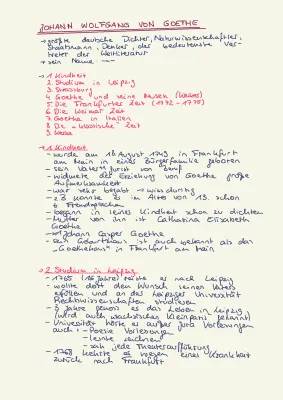 JOHANN WOLFGANG VON GOETHE
→ größte deutsche Dichter, Naturwissenschaftler,
Staatsmann, Denker, der bedeutenste Ver-
treter der Weltliteratur
→ sein Name ---
→ 1. Kindheit
2. Studium in Leipzig
3. Strassburg
4. Goethe und seine Reisen
5. Die Frankfurter Zeit (1772 - 1775)
6. Die Weimar Zeit
7. Goethe in Italien
8. Die "klassische" Zeit
9. Werke
→ 1. Kindheit
- wurde am 28 August 1749 in Frankfurt
am Main in eine Bürgerfamilie geboren
- sein Vater: Jurist von Beruf
- widmete der Erziehung von Goethe große
Aufmerksamkeit
- war sehr begabt → wissdurstig
- z.B konnte er im Alte von 13. schon
6 Fremdsprachen
- begann in seines Kindheit schon zu dichten
- Mutter von ihm ist Catharina Elisabeth
Goethe
- Johann Casper Goethe
- sein Geburtshaus ist auch bekannt als das
"Goethehaus" in Frankfurt am Main
→ 2. Studium in Leipzig
- 1765 (16 Jahre) reiste er nach Leipzig
- wollte dort den Wunsch seinen Vaters
erfüllen und an der Leipziger Universität
Rechtswissenschaften studieren
- 3 Jahre genoss er das Leben in Leipzig
(wird auch wachstisches Kleinparis genannt)
- Universität hörte er außer Jura Vorlesungen
auch: - Poesie Vorlesungen
- lernte zeichnen
- sah jede Theateraufführung
- 1768 kehrte es wegen eines Krankheit
zurück nach Frankfurt